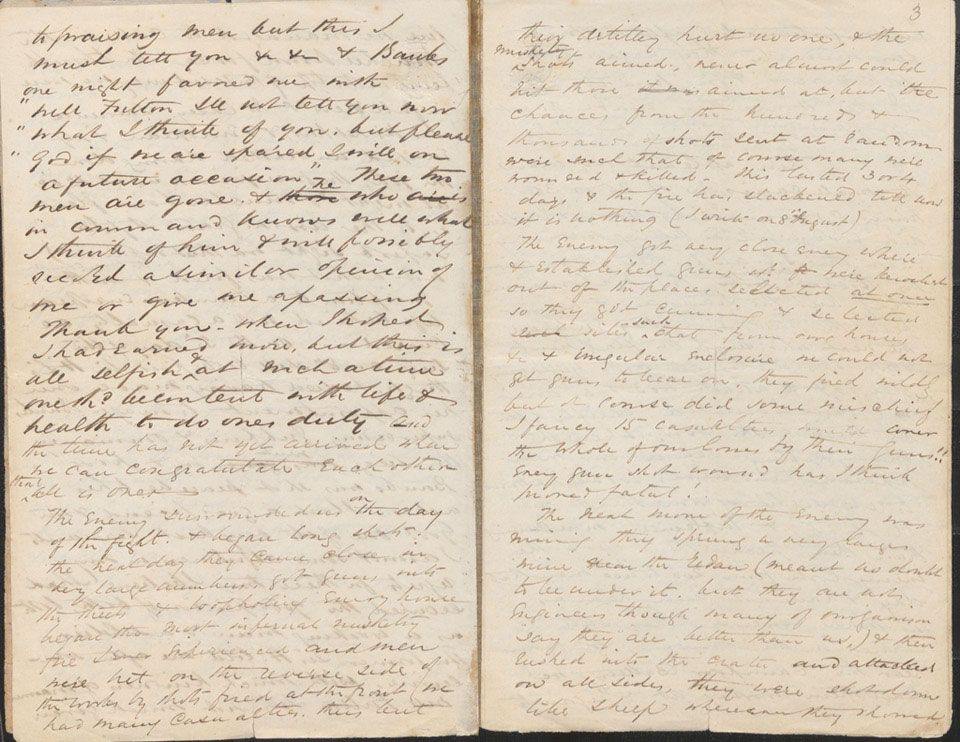 to praising men but this I
must tell you & & & Banks
one night favored me with
"well Fulton Ill not tell you now
"what I think of you. but please
"God if we are spared I will on
a future occasion" These two
men are gone. & the who is
in command knows well what
I think of him & will possibly
record a similar opinion of
me or give me a passing
Thank you - when I hoped
I had Earned more, but this is
all selfish, & at such a time
one shd be content with life &
health to do ones duty and
the time has not yet arrived when
we can congratulate Each other
that all is over
The Enemy surrounded us on the day
of the fight & began long shots!
the next day they came close in
very large numbers got guns into
the streets & loopholing Every house
began the most infernal musketry
fire I ever Experienced and men
were hit on the reverse side of
the works by shots fired at the front (we
had many casualties. this but
3
their artillery hurt no one, & the
musketry shots aimed, never almost could
hit those aimed at, but the
chances from the hundreds &
thousands of shots sent at random
were such that of course many were
wounded & killed - This lasted 3 or 4
days & the fire has slackened till now
it is nothing (I write on 8th August)
The Enemy got very close every where
& Established guns, were knocked
out of the places selected at once
so they got cunning & selected
such sites that from our houses
& & irregular enclosure we could not
get guns to bear on they fired wildly
but of course did some mischief
I fancy 15 casualties would cover
the whole of our losses by their guns!!
Every gun shot wound has I think
proved fatal!
The next move of the Enemy was
mining they sprung a very large
mine near the Redan (meant no doubt
to be under it. but they are not
Engineers though many of our garrison
say they are better than us,) & then
rushed into the crater and attacked
on all sides, they were shot down
like sheep wherever they showed